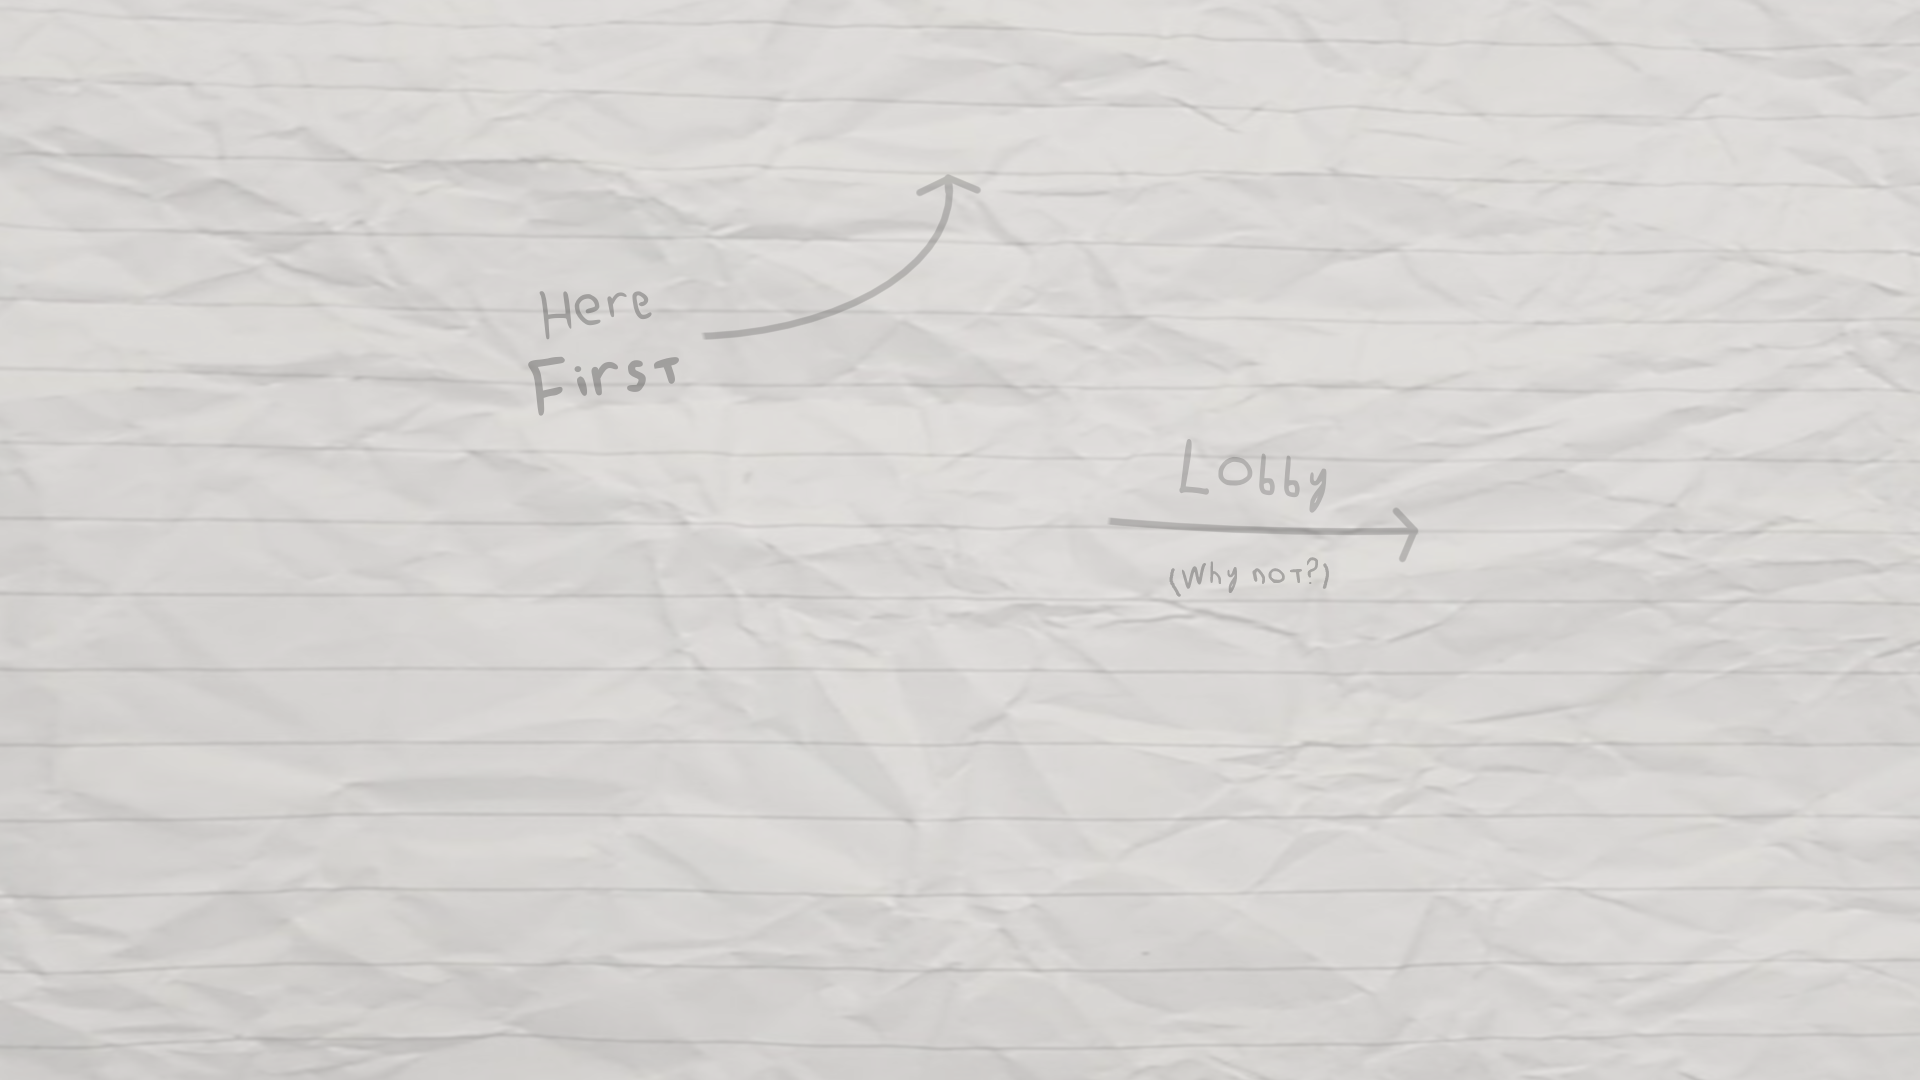 Here
First
Lobby
(Why not?)